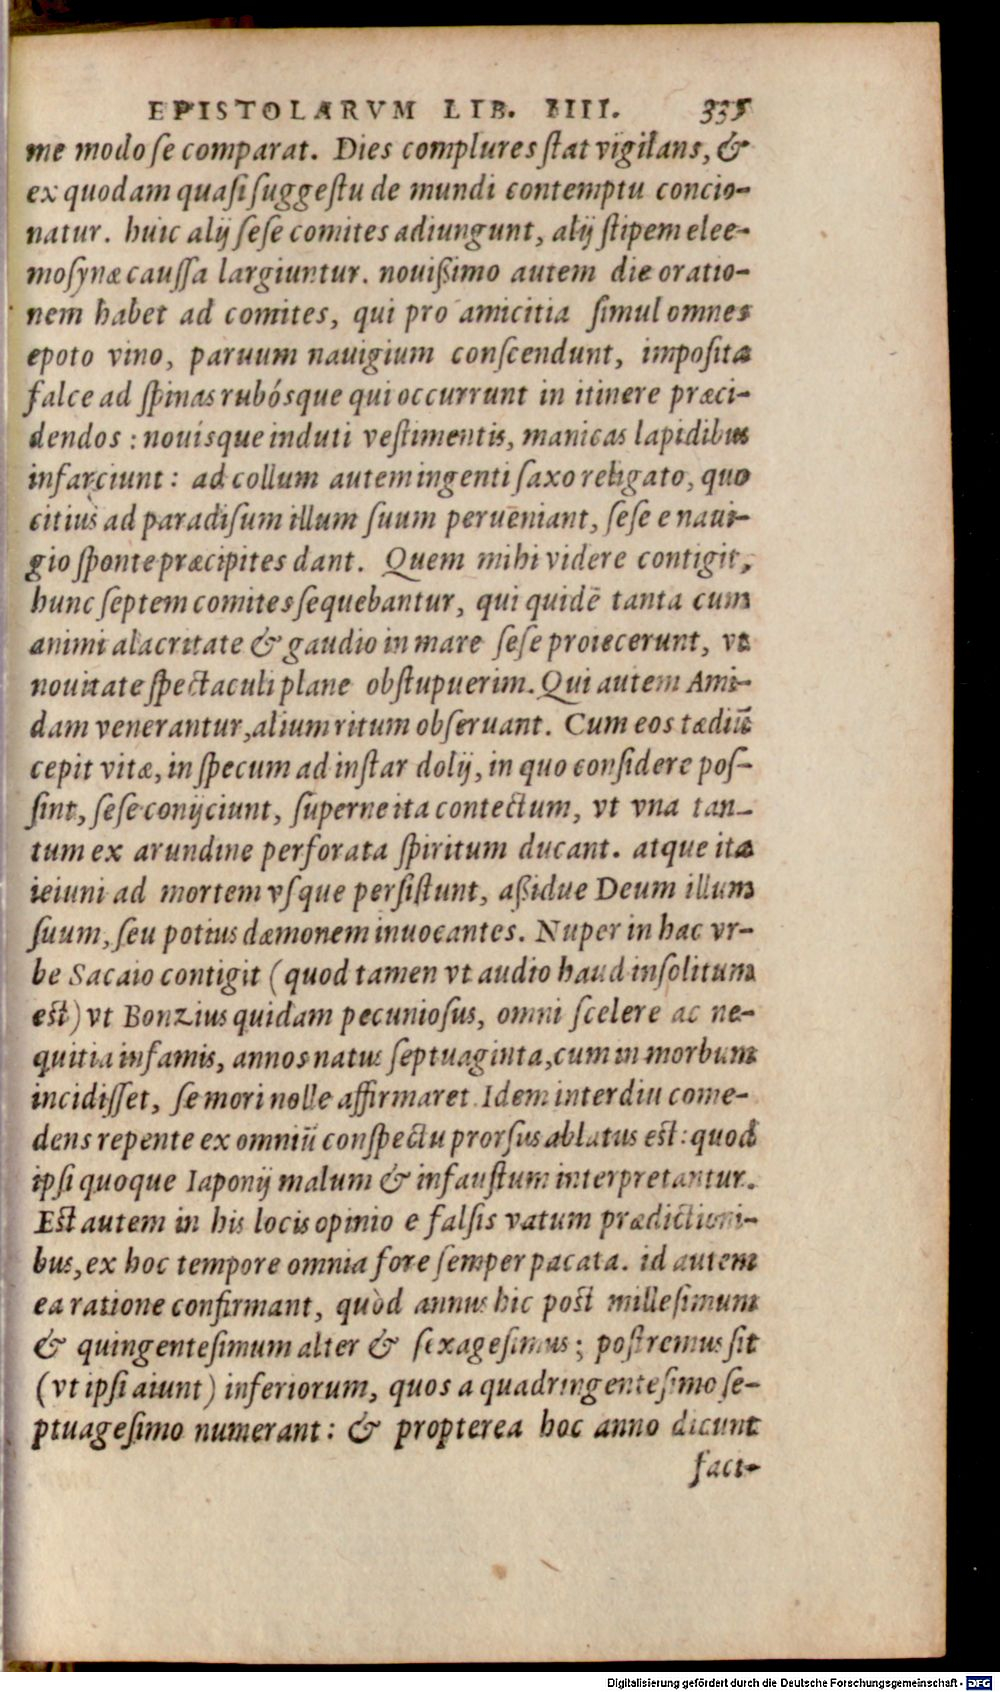 EPISTOLARVM LIB. IIII. 335
me modo ſe comparat. Dies complures ſtat vigilans, &
ex quodam quaſi ſuggeſtu de mundi contemptu concio-
natur. huic alij ſeſe comites adiungunt, alij ſtipem elee-
moſynæ cauſſa largiuntur. nouißimo autem die oratio-
nem habet ad comites, qui pro amicitia ſimul omnes
epoto vino, paruum nauigium conſcendunt, impoſita
falce ad ſpinas rubósque qui occurrunt in itinere præci-
dendos : nouisque induti veſtimentis, manicas lapidibus
infarciunt : ad collum autem ingenti ſaxo religato, quo
citius ad paradiſum illum ſuum perueniant, ſeſe e naui-
gio ſponte præcipites dant. Quem mihi videre contigit,
hunc ſeptem comites ſequebantur, qui quidē tanta cum
animi alacritate & gaudio in mare ſeſe proiecerunt, vt
nouitate ſpectaculi plane obſtupuerim. Qui autem Ami-
dam venerantur, alium ritum obſeruant. Cum eos tædiū
cepit vitæ, in ſpecum ad inſtar dolij, in quo conſidere poſ-
ſint, ſeſe conijciunt, ſuperne ita contectum, vt vna tan-
tum ex arundine perforata ſpiritum ducant. atque ita
ieiuni ad mortem vſque perſiſtunt, aßidue Deum illum
ſuum, ſeu potius dæmonem inuocantes. Nuper in hac vr-
be Sacaio contigit (quod tamen vt audio haud inſolitum
eſt) vt Bonzius quidam pecunioſus, omni ſcelere ac ne-
quitia infamis, annos natus ſeptuaginta, cum in morbum
incidiſſet, ſe mori nolle affirmaret. Idem interdiu come-
dens repente ex omniū conſpectu prorſus ablatus eſt: quod
ipſi quoque Iaponij malum & infauſtum interpretantur.
Eſt autem in his locis opinio e falſis vatum prædictioni-
bus, ex hoc tempore omnia fore ſemper pacata. id autem
ea ratione confirmant, quòd annus hic poſt milleſimum
& quingenteſimum alter & ſexageſimus ; poſtremus ſit
(vt ipſi aiunt) inferiorum, quos a quadringenteſimo ſe-
ptuageſimo numerant : & propterea hoc anno dicunt
faci-
Digitalisierung gefördert durch die Deutsche Forschungsgemeinschaft - DFG